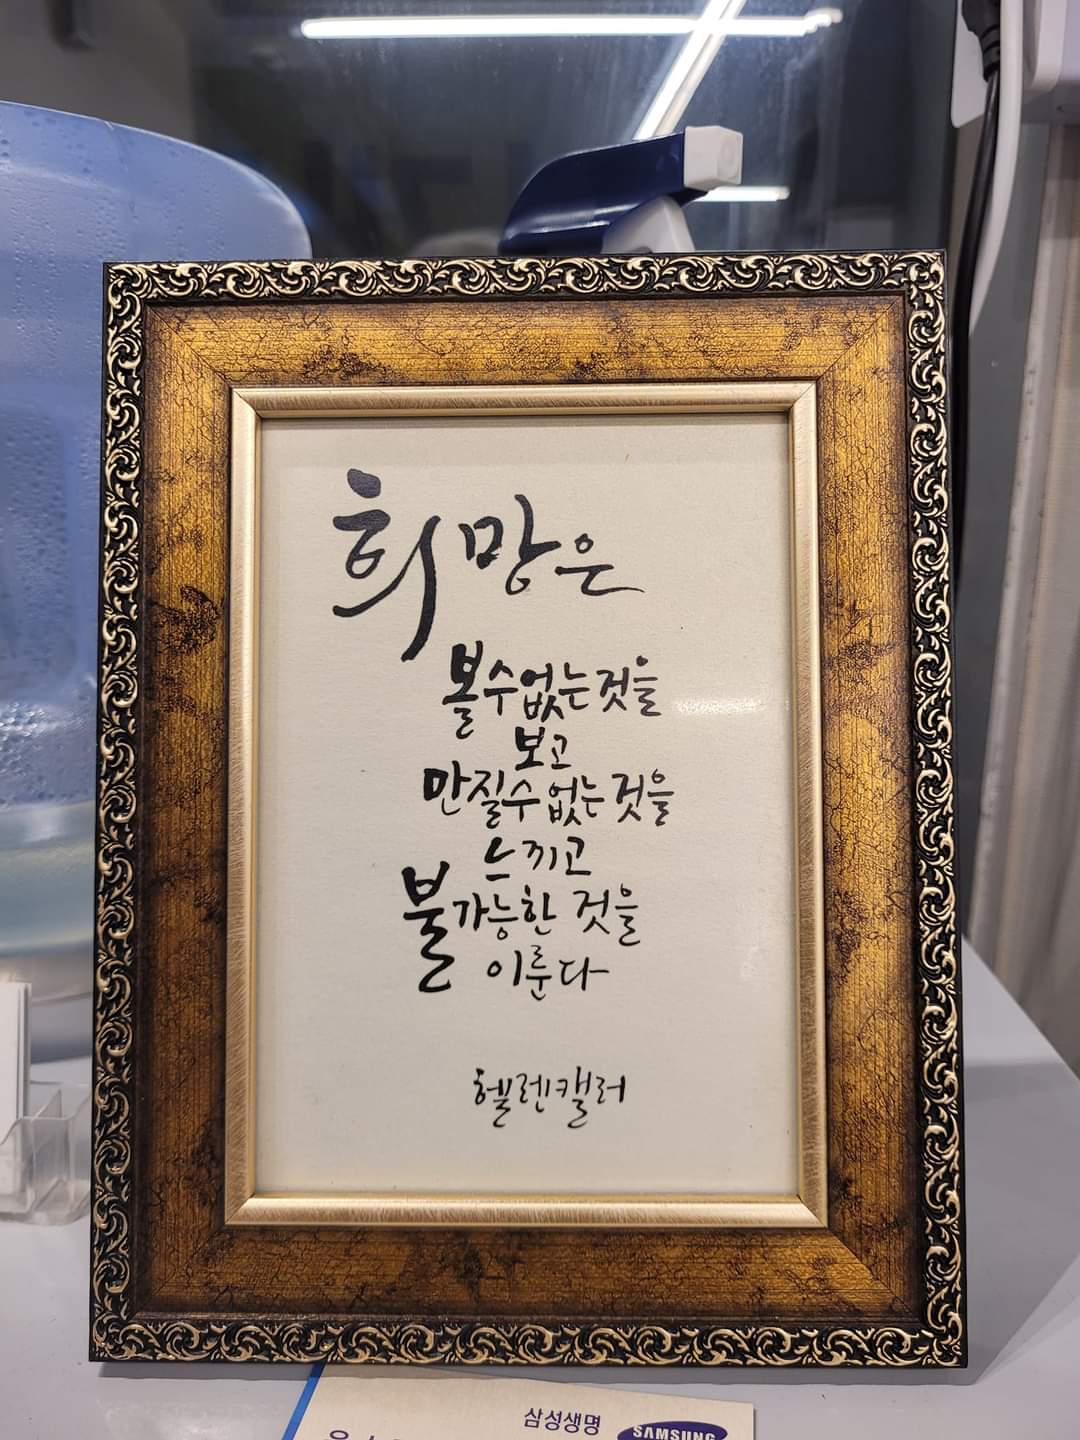 희망은
볼수없는것을
보고
만질수없는것을
느끼고
불가능한 것을
이룬다
헬렌캘러
삼성생명
SAMSUNG